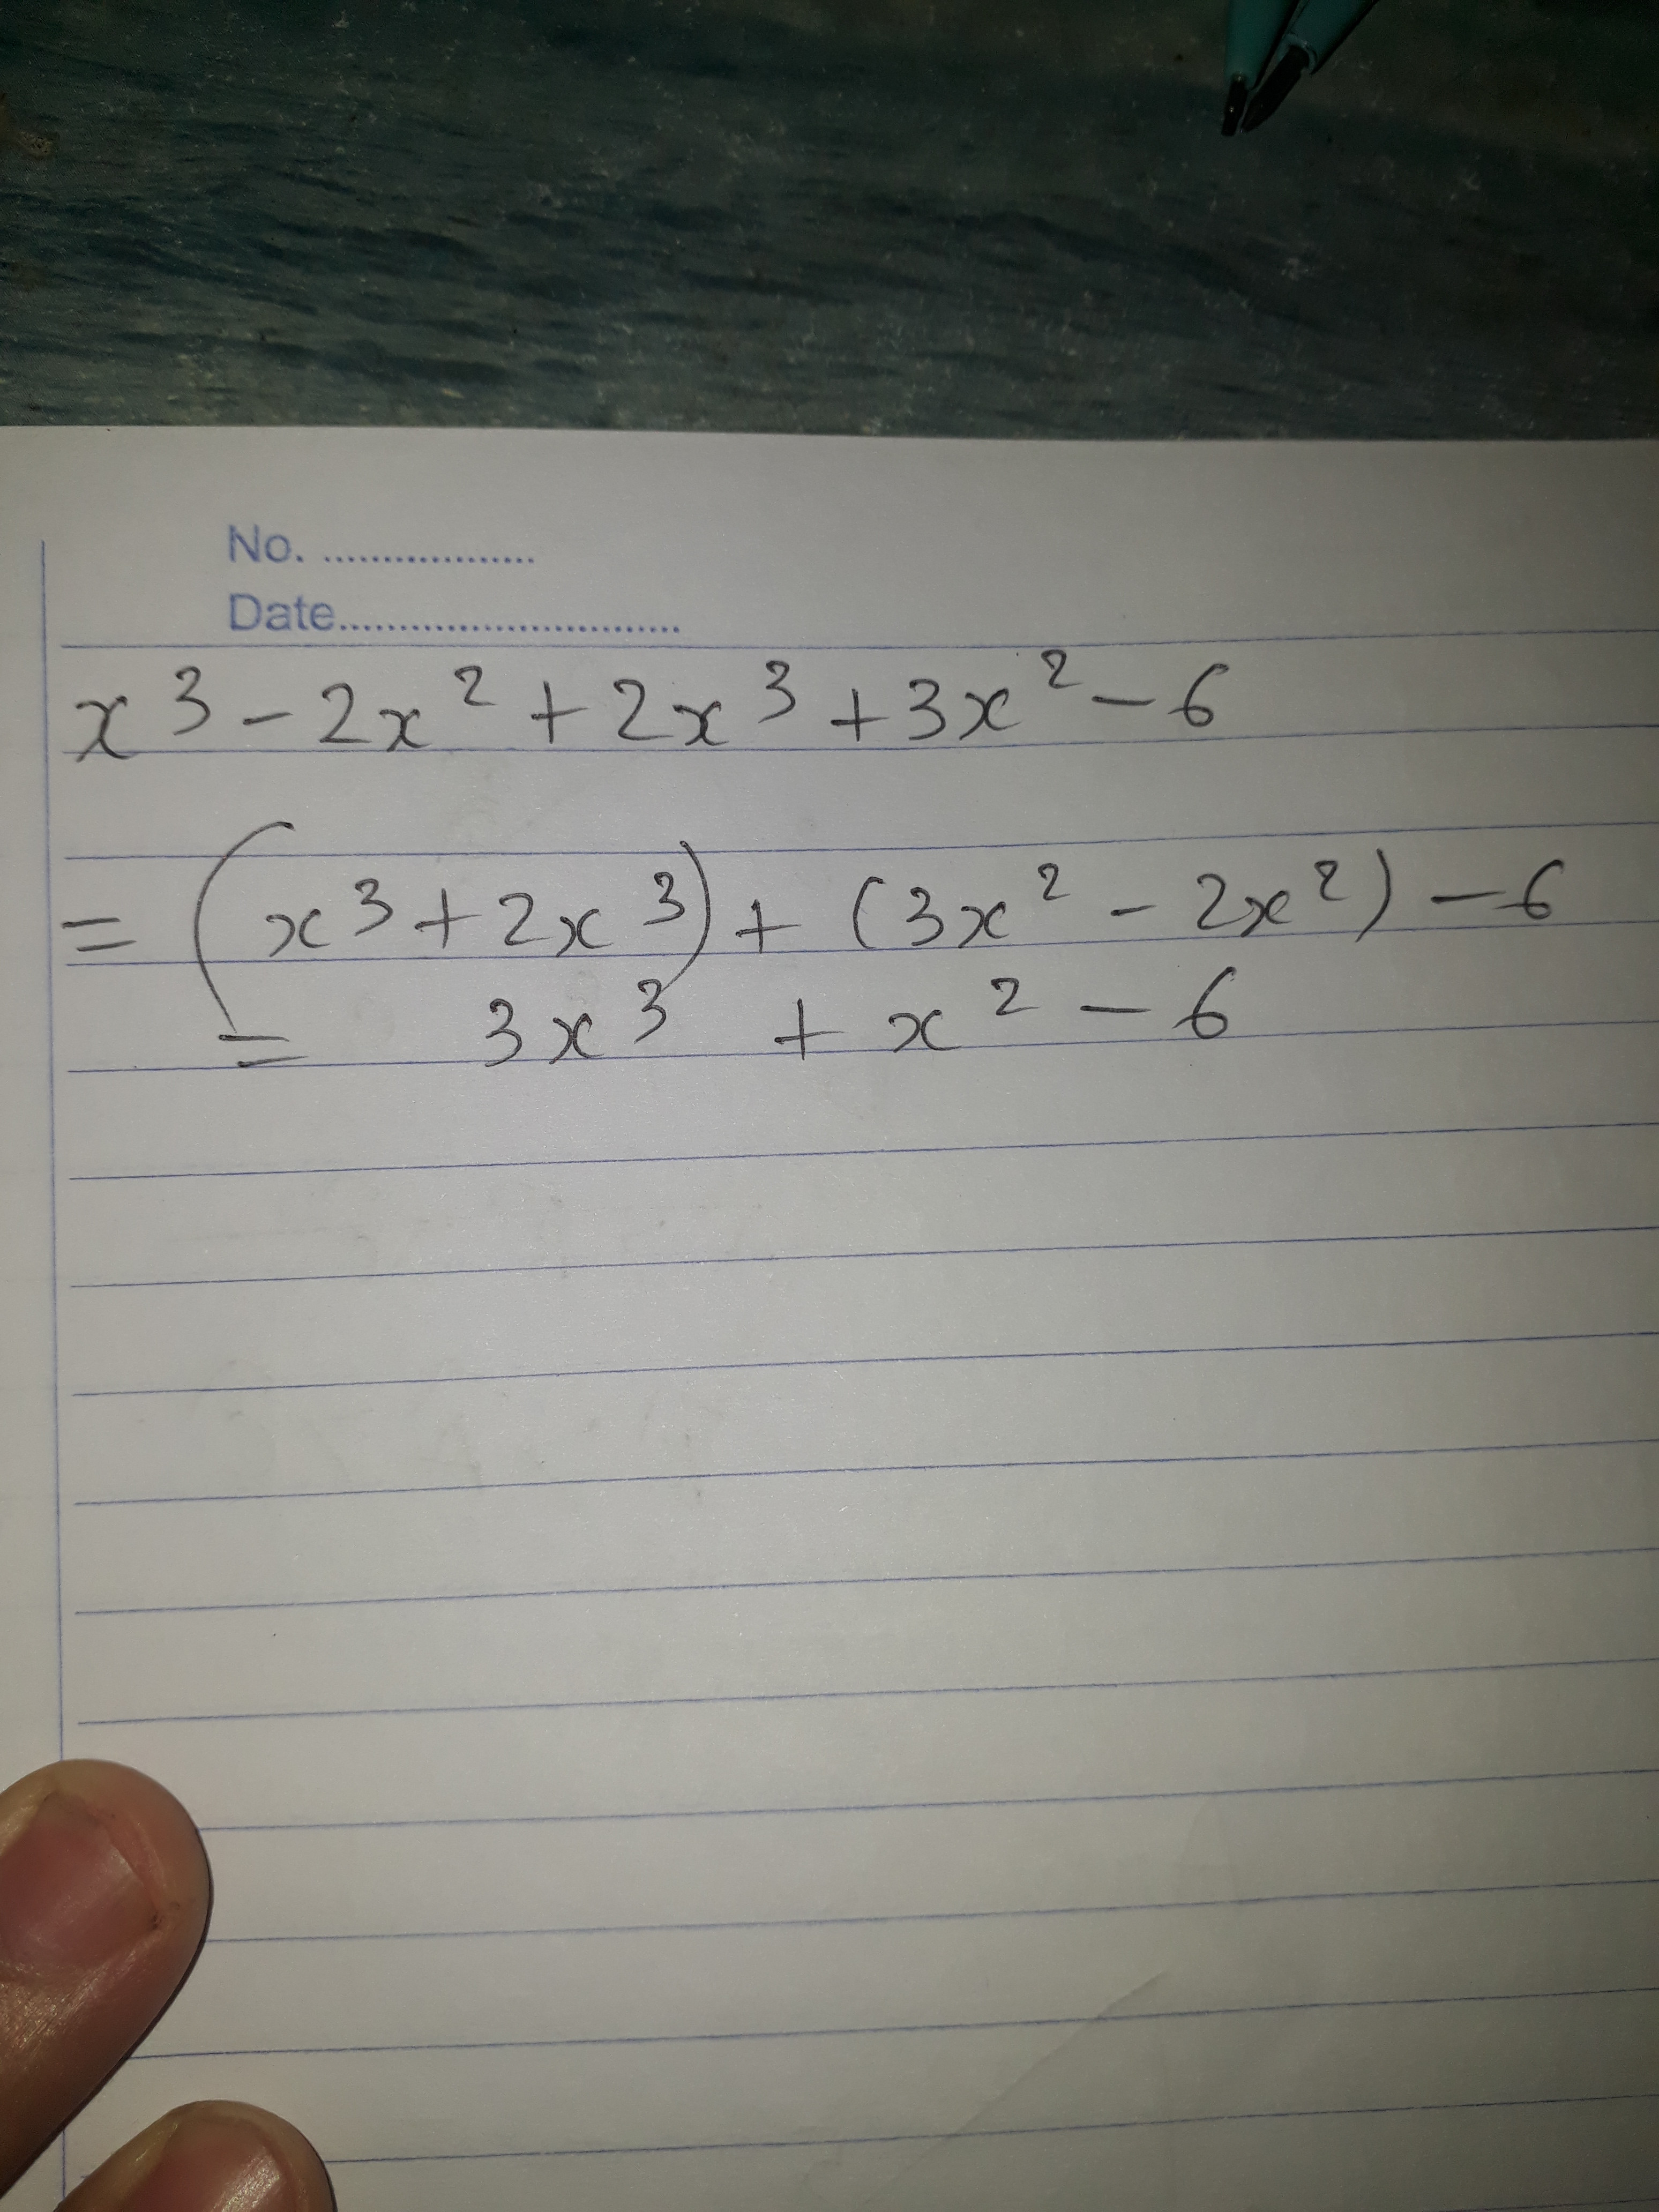 No. ...................
Date.............................
x³ - 2x² + 2x³ + 3x² - 6
= (x³ + 2x³) + (3x² - 2x²) - 6
= 3x³ + x² - 6